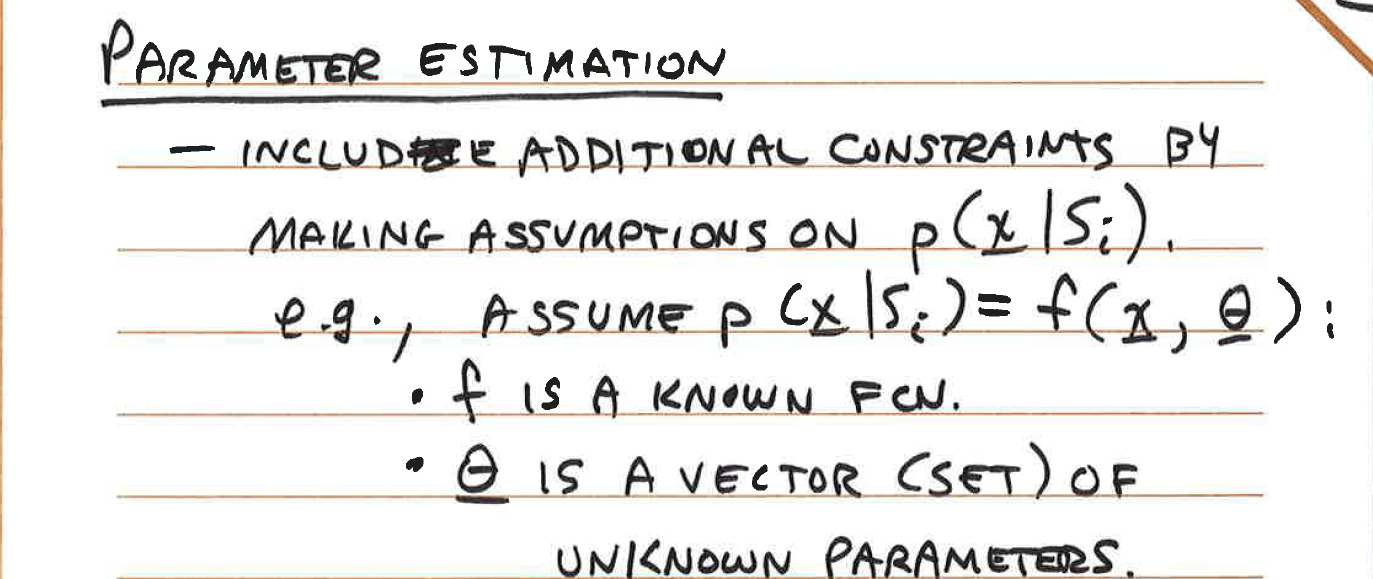 PARAMETER ESTIMATION
- INCLUDE ADDITIONAL CONSTRAINTS BY
MAKING ASSUMPTIONS ON p(x|Sᵢ).
e.g., ASSUME p(x|Sᵢ) = f(x, θ):
• f IS A KNOWN FCN.
• θ IS A VECTOR (SET) OF
UNKNOWN PARAMETERS.